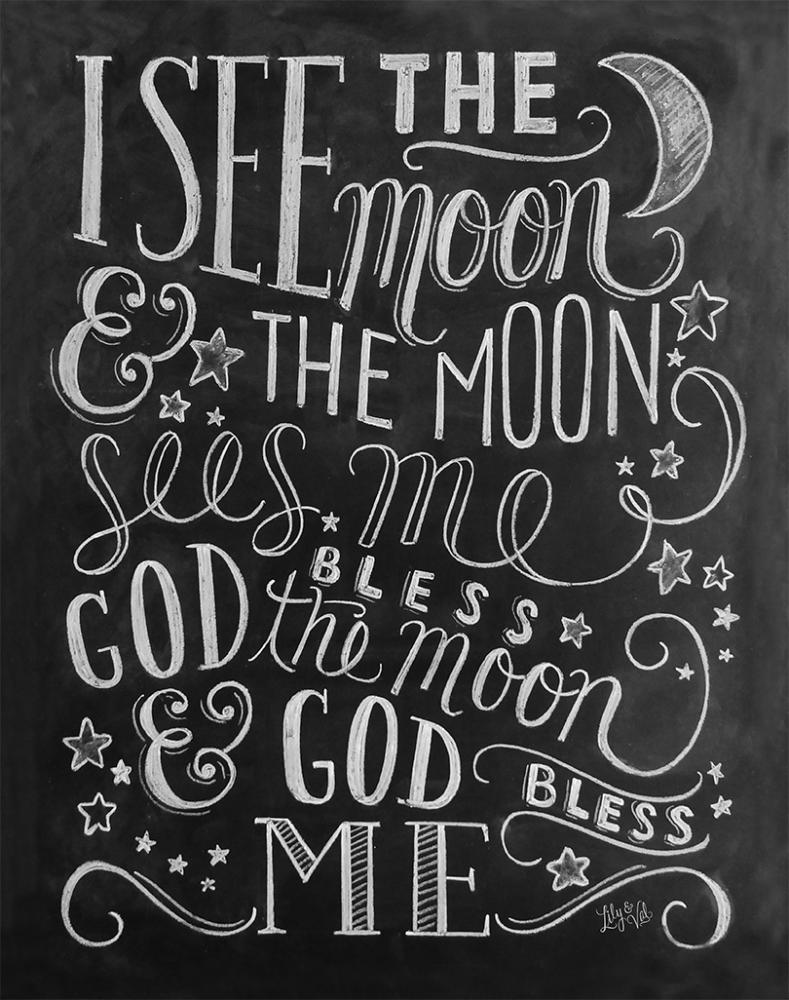 I SEE THE
moon
& THE MOON
sees me
GOD BLESS
the moon
& GOD
BLESS
ME
Lily & Val